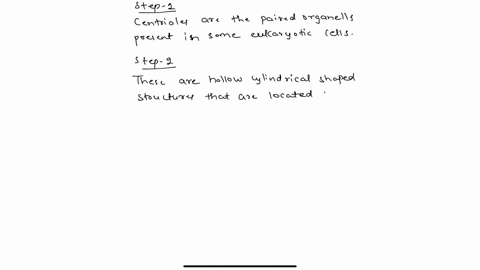 Step-1
Centrioles are the paired organells
present in some eukaryotic cells.
Step-2
These are hollow cylindrical shaped
structures that are located